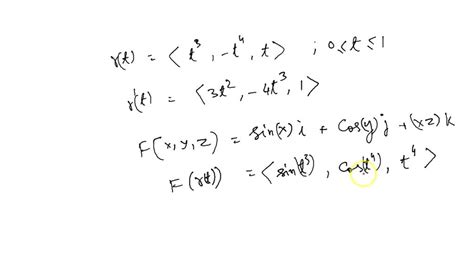 r(t) = < t³, -t⁴, t > ; 0 ≤ t ≤ 1
r'(t) = < 3t², -4t³, 1 >
F(x, y, z) = sin(x) i + cos(y) j + (xz) k
F(r(t)) = < sin(t³), cos(t⁴), t⁴ >